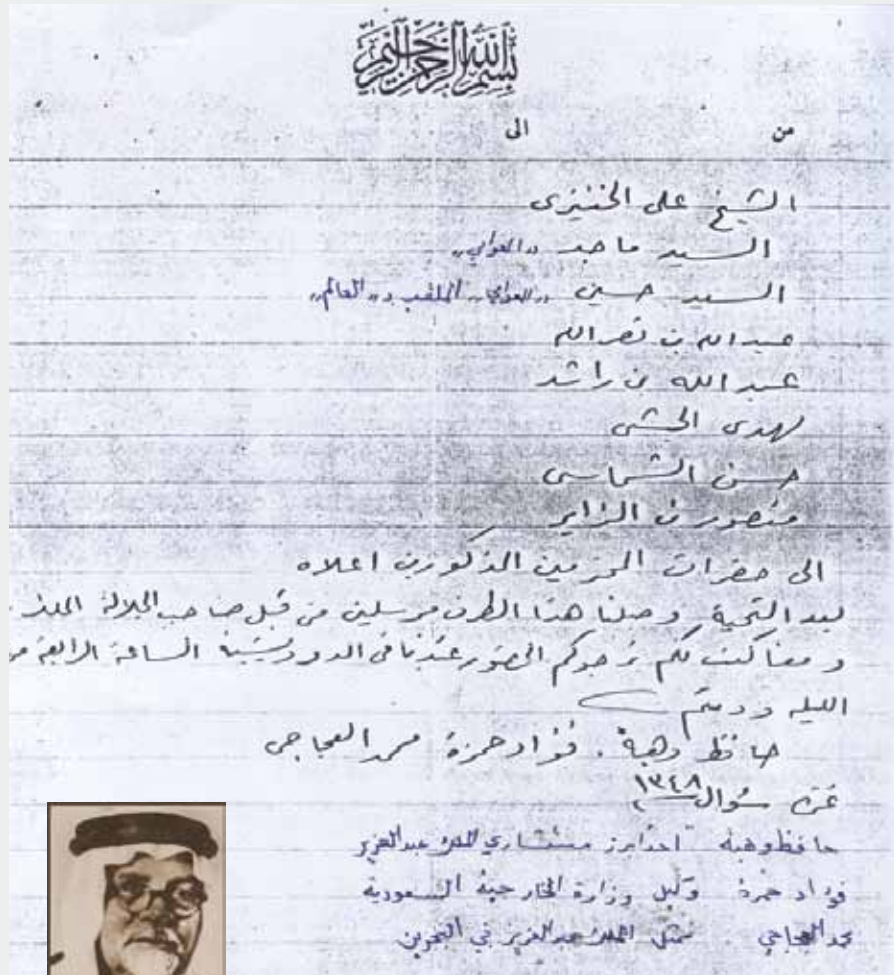 بسم الله الرحمن الرحيم
من الى
الشيخ علي الخنيزى
السيد ماجد "العوامي"
السيد حسين "العوامي" الملقب بـ "العالم"
عبدالله بن نصرالله
عبدالله بن راشد
مهدى الجشى
حسن الشماسى
منصور بن الزاير
الى حضرات المحترمين المذكورين اعلاه
بعد التحية وصلنا هذا الطرف مرسلين من قبل صاحب الجلالة الملك
و معنا كتب لكم نرجوكم الحضور عندنا فى الساعة الرابعة من
الليله ودمتم
حافظ وهبة . فؤاد حمزة محمد العجاجى
غرة شوال ١٣٤٨
حافظ وهبة احد ابرز مستشاري الملك عبدالعزيز
فؤاد حمزة وكيل وزارة الخارجية السعودية
محمد العجاجي . ممثل الملك عبدالعزيز في البحرين